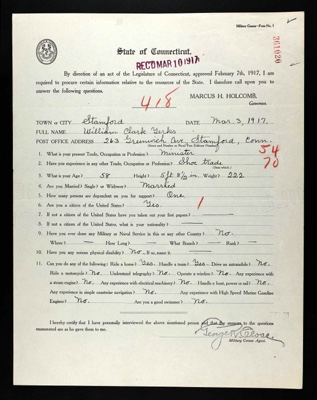 Military Census—Form No. 1
261020
State of Connecticut,
REC'D MAR 10 1917
By direction of an act of the Legislature of Connecticut, approved February 7th, 1917, I am
required to procure certain information relative to the resources of the State. I therefore call upon you to
answer the following questions.
MARCUS H. HOLCOMB,
Governor.
418
TOWN or CITY Stamford DATE Mar. 3, 1917.
FULL NAME William Clark
POST OFFICE ADDRESS 263 Greenwich Av. Stamford, Conn.
54
1. What is your present Trade, Occupation or Profession? Minister
70
2. Have you experience in any other Trade, Occupation or Profession? Shoe trade
3. What is your Age? 58 Height? 5ft 8½ in. Weight? 222
4. Are you Married? Single? or Widower? Married
5. How many persons are dependent on you for support? One
6. Are you a citizen of the United States? Yes. 1
7. If not a citizen of the United States have you taken out your first papers?
8. If not a citizen of the United States, what is your nationality?
9. Have you ever done any Military or Naval Service in this or any other Country? No.
Where? — How Long? — What Branch? — Rank? —
10. Have you any serious physical disability? No. If so, name it.
11. Can you do any of the following: Ride a horse? Yes. Handle a team? Yes. Drive an automobile? No.
Ride a motorcycle? No. Understand telegraphy? No. Operate a wireless? No. Any experience with
a steam engine? No. Any experience with electrical machinery? No. Handle a boat, power or sail? No.
Any experience in simple coastwise navigation? No. Any experience with High Speed Marine Gasoline
Engines? No. Are you a good swimmer? No.
I hereby certify that I have personally interviewed the above mentioned person and that the answers to the questions
enumerated are as he gave them to me.
Military Census Agent.